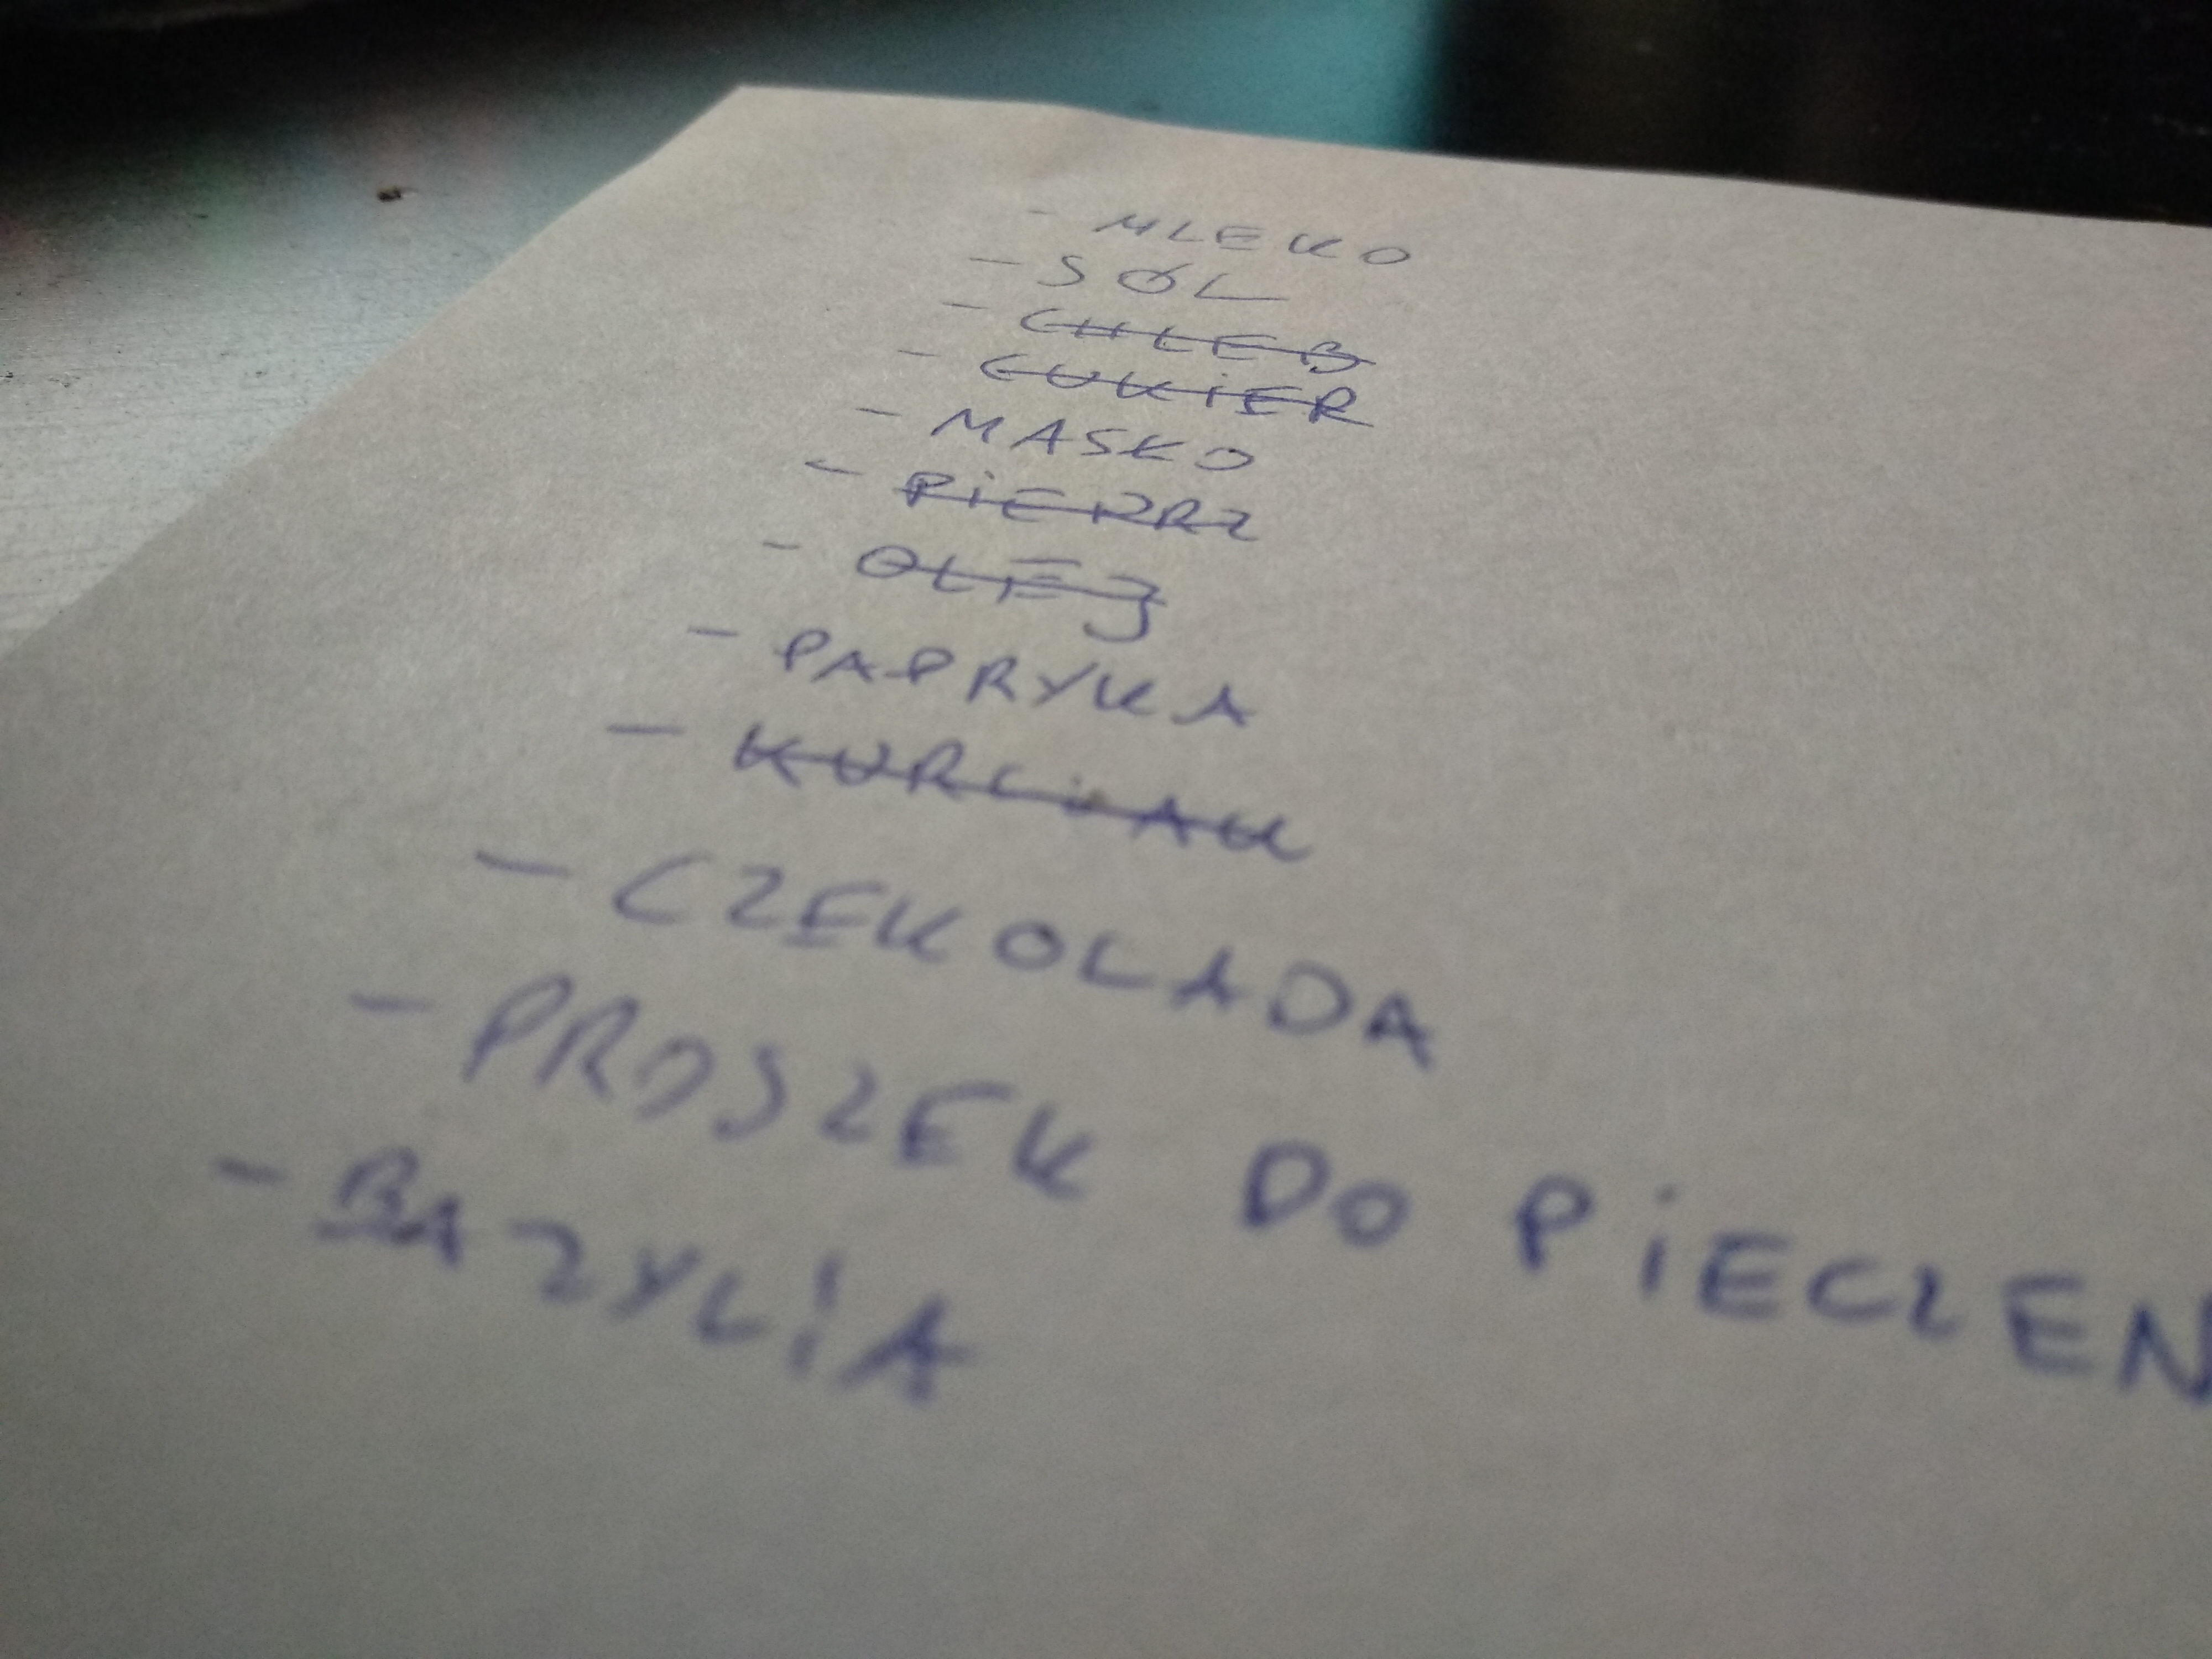 - MLEKO
- SÓL
- CHLEB
- CUKIER
- MASKO
- PIEPRZ
- OLEJ
- PAPRYKA
- KURCZAK
- CZEKOLADA
- PROSZEK DO PIECZEN
- BAZYLIA